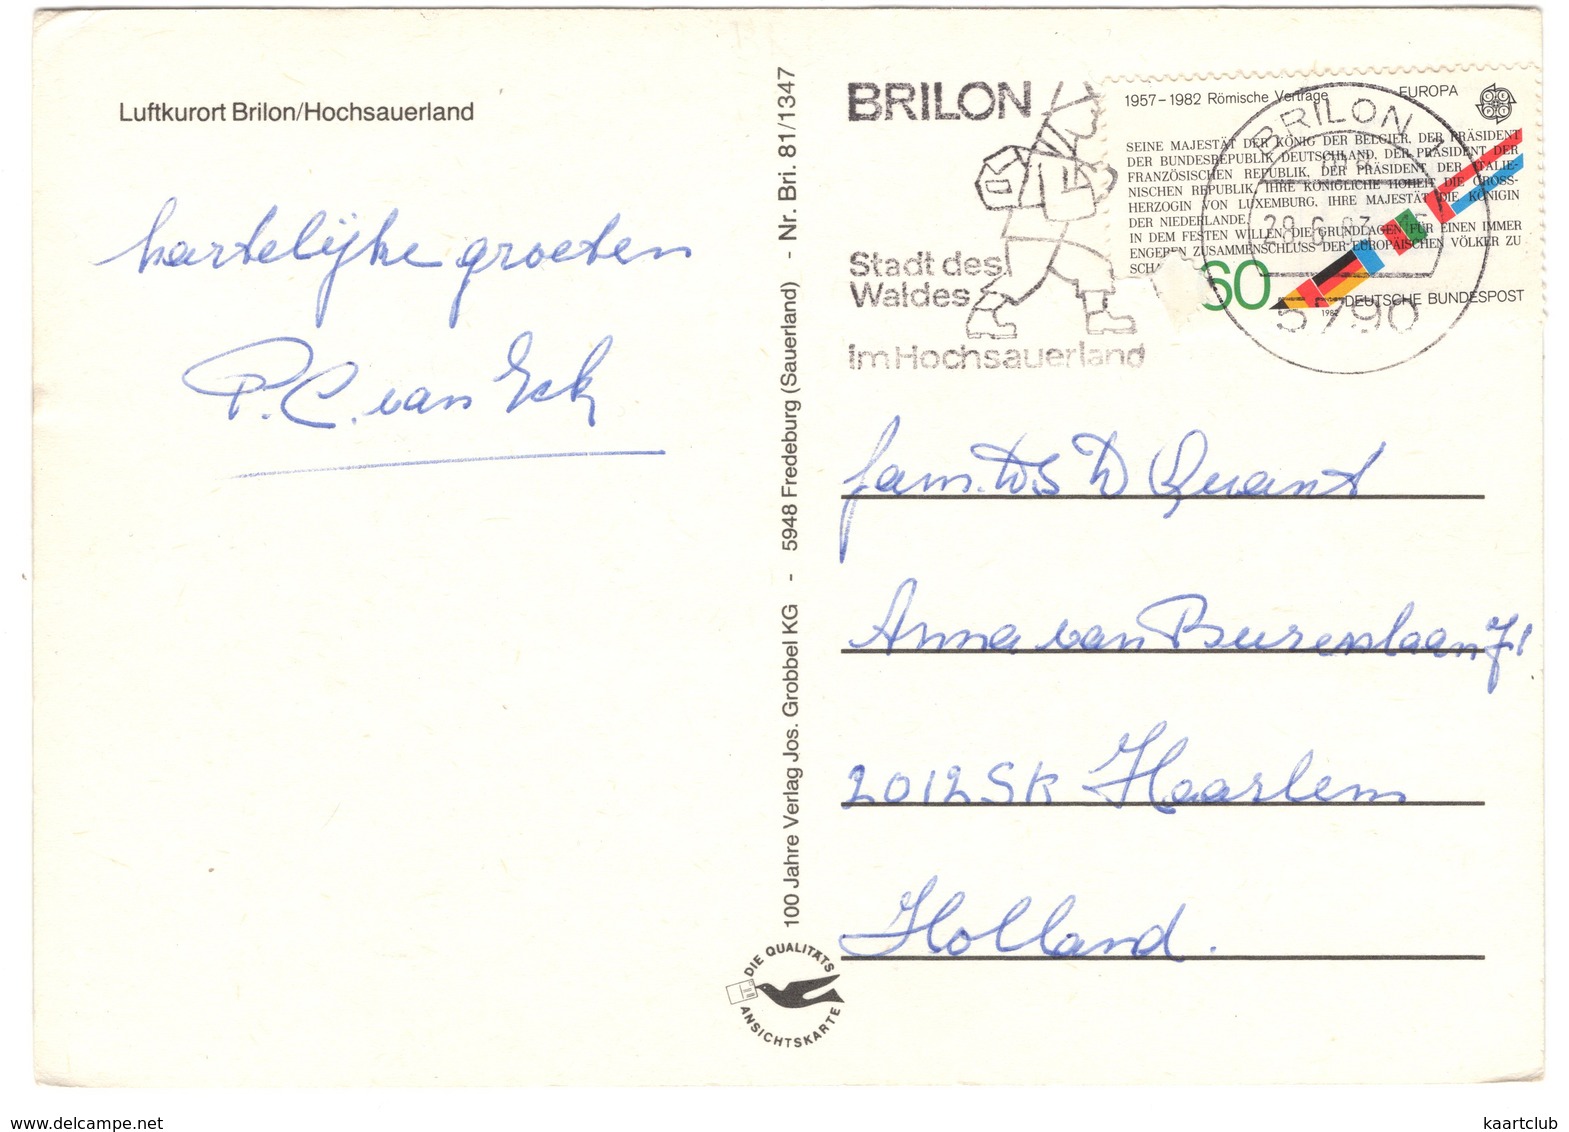 Luftkurort Brilon/Hochsauerland
hartelijke groeten
P.C. van Eck
100 Jahre Verlag Jos. Grobbel KG - 5948 Fredeburg (Sauerland) - Nr. Bri. 81/1347
DIE QUALITÄTS
ANSICHTSKARTE
BRILON
Stadt des
Waldes
im Hochsauerland
1957-1982 Römische Verträge EUROPA
SEINE MAJESTÄT DER KÖNIG DER BELGIER, DER PRÄSIDENT
DER BUNDESREPUBLIK DEUTSCHLAND, DER PRÄSIDENT DER
FRANZÖSISCHEN REPUBLIK, DER PRÄSIDENT DER ITALIE-
NISCHEN REPUBLIK, IHRE KÖNIGLICHE HOHEIT DIE GROSS-
HERZOGIN VON LUXEMBURG, IHRE MAJESTÄT DIE KÖNIGIN
DER NIEDERLANDE
IN DEM FESTEN WILLEN, DIE GRUNDLAGEN FÜR EINEN IMMER
ENGEREN ZUSAMMENSCHLUSS DER EUROPÄISCHEN VÖLKER ZU
SCHA
60
1982
DEUTSCHE BUNDESPOST
BRILON 1
5790
fam. Ds D Quant
Anna van Burenlaan 71
2012SK Haarlem
Holland.
delcampe.net
kaartclub